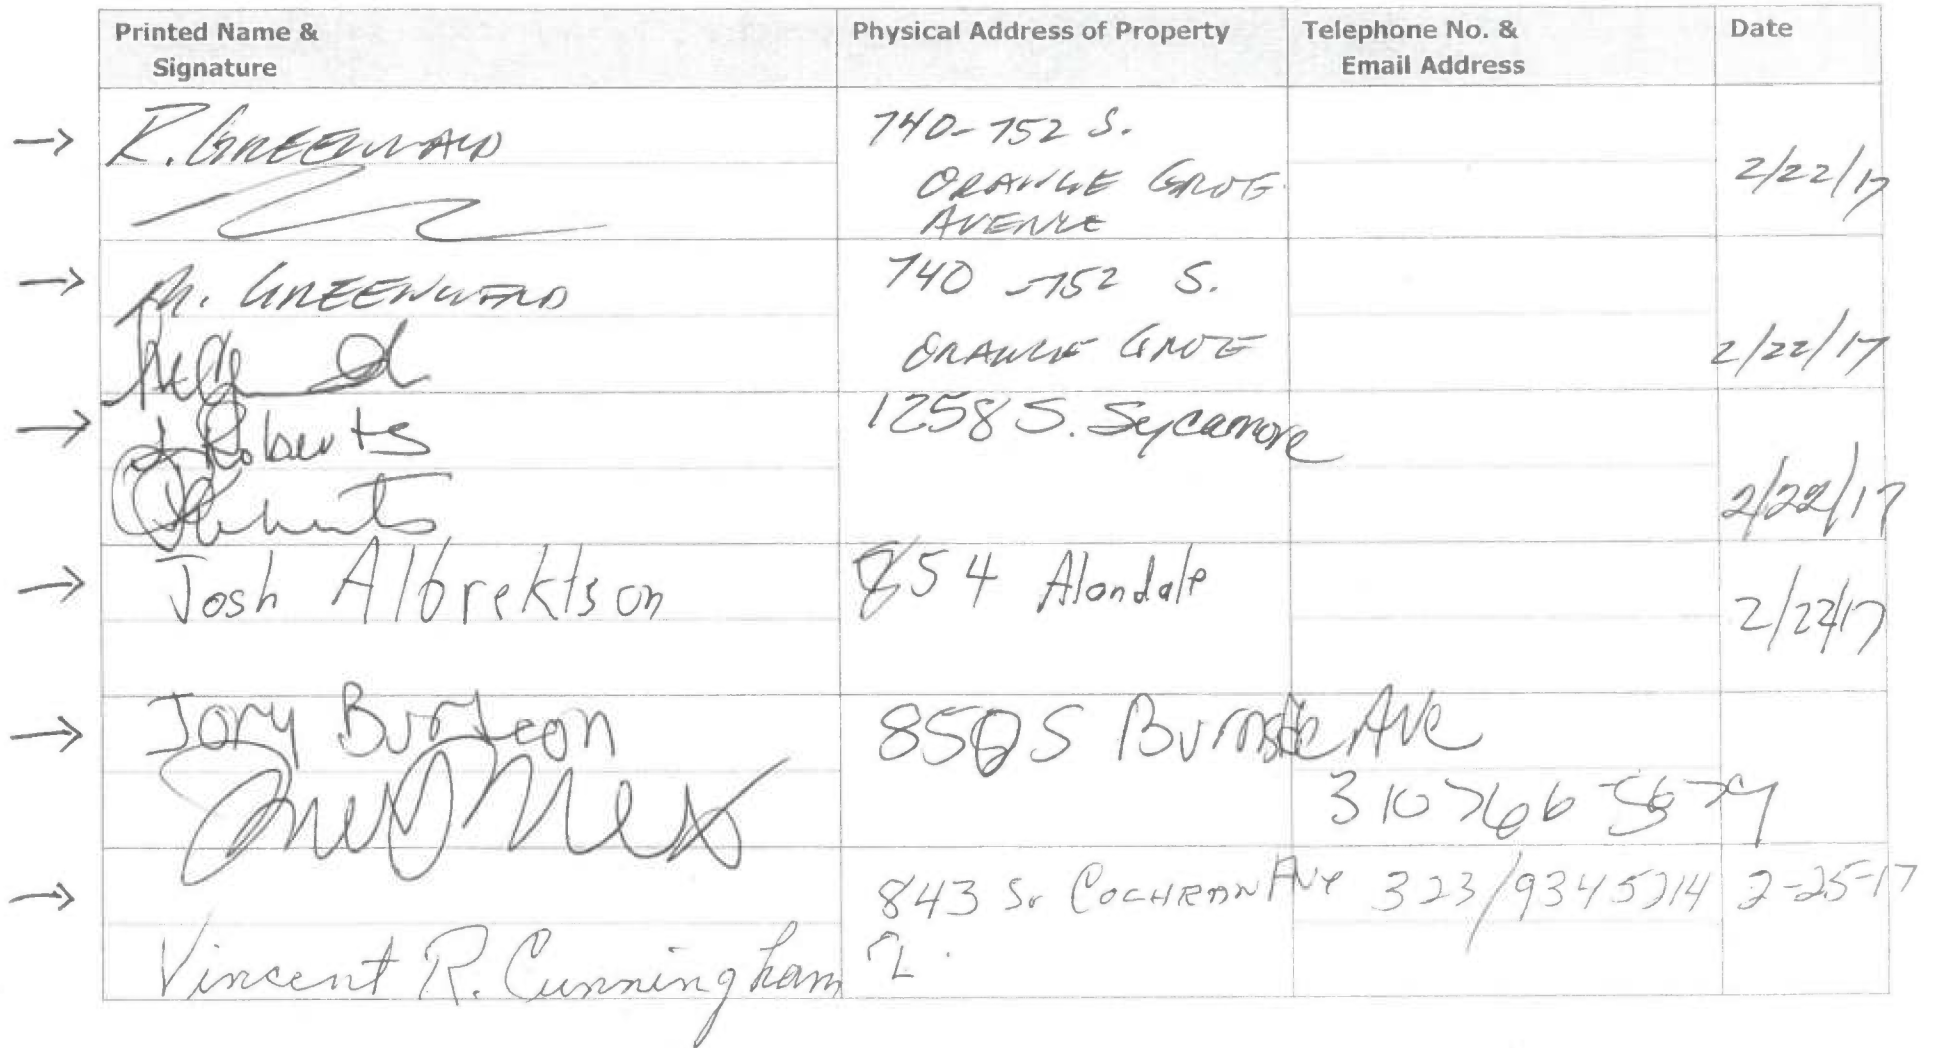 Printed Name &
Signature
Physical Address of Property
Telephone No. &
Email Address
Date
→ R. GREENWALD
740-752 S.
ORANGE GROVE
AVENUE
2/22/17
→ M. GREENWALD
740-752 S.
ORANGE GROVE
2/22/17
→ J Roberts
1258 S. Sycamore
2/22/17
→ Josh Albrektson
854 Alandale
2/22/17
→ Jory Burdeon
850 S Burnside Ave
→
843 So COCHRAN AVE
323/934 5214
2-25-17
Vincent R. Cunningham